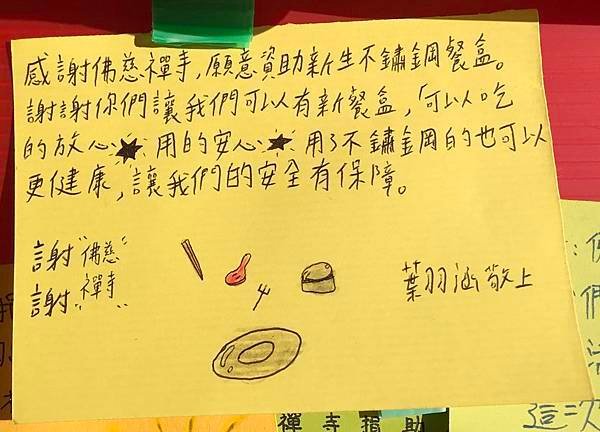 感謝佛慈禪寺,願意資助新生不鏽鋼餐盒。
謝謝你們讓我們可以有新餐盒,可以吃
的放心★用的安心★用了不鏽鋼的也可以
更健康,讓我們的安全有保障。
謝"佛慈"
謝"禪寺"
葉羽涵敬上
們
這次
禪寺捐助